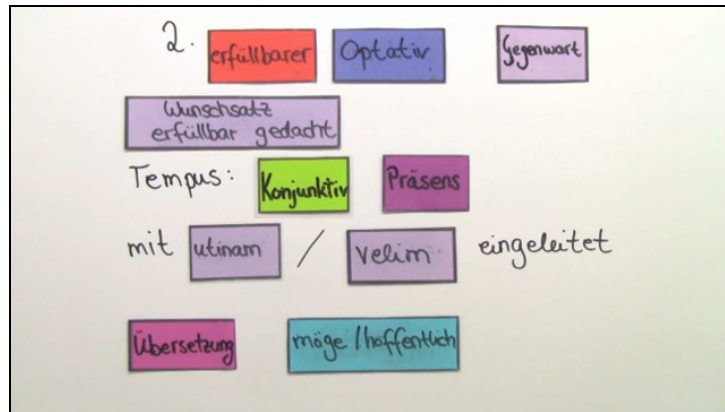 2. erfüllbarer Optativ Gegenwart
Wunschsatz
erfüllbar gedacht
Tempus: Konjunktiv Präsens
mit utinam / velim eingeleitet
Übersetzung möge/hoffentlich